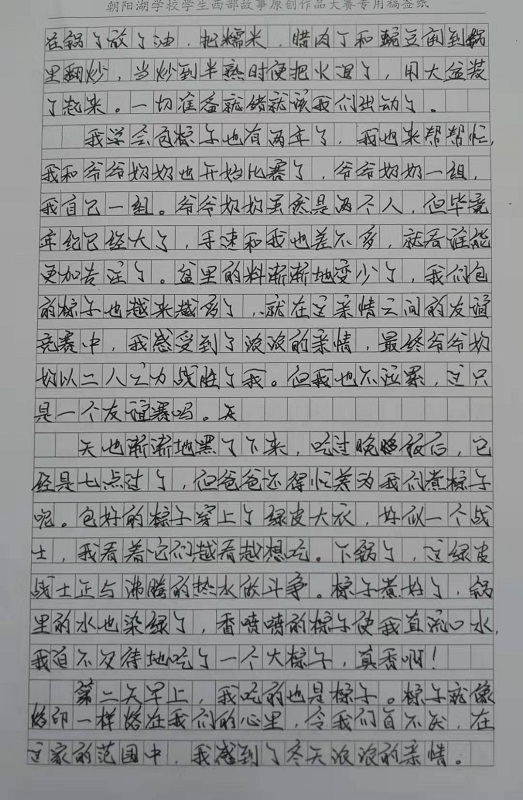 朝阳湖学校学生西部故事原创作品大赛专用稿签纸
在锅了放了油，把糯米，腊肉丁和豌豆倒到锅
里翻炒，当炒到半熟时便把火退了，用大盆装
了起来。一切准备就绪就该我们出动了。
我学会包粽子也有两年了，我也来帮帮忙，
我和爷爷奶奶也开始比赛了，爷爷奶奶一组，
我自己一组。爷爷奶奶虽然是两个人，但毕竟
年纪已经大了，手速和我也差不多，就看谁能
更加专注了。盆里的料渐渐地变少了，我们包
的粽子也越来越多了，就在这亲情之间的友谊
竞赛中，我感受到了浓浓的亲情，最终爷爷奶
奶以二人之力战胜了我。但我也不泣累，这只
是一个友谊赛吗。天
天也渐渐地黑了下来，吃过晚饭后，已
经是七点过了，但爸爸还得忙着为我们煮粽子
呢。包好的粽子穿上了绿皮大衣，好似一个战
士，我看着它们越看越想吃。下锅了，这绿皮
战士正与沸腾的热水做斗争。粽子煮好了，锅
里的水也染绿了，香喷喷的粽子使我直流口水，
我迫不及待地吃了一个大粽子，真香啊！
第二天早上，我吃的也是粽子。粽子就像
烙印一样烙在我们的心里，令我们自不矢，在
这家的范围中，我感到了冬天浓浓的亲情。